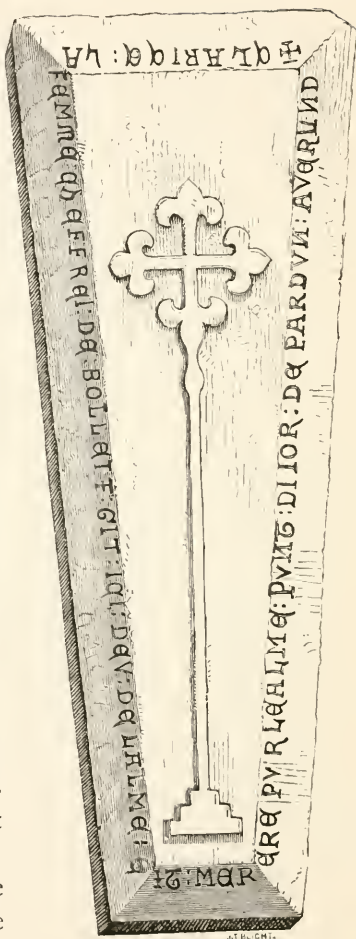 ✠ CLARICE : LA
FEMME GHEFFREI : DE BOLLEIT : GIT : ICI : DEV : DE LALME : E
IT : MER
ERE PVR LEALME : PVNT : DI IOR : DE PARDVN : AVERUND
J.T. BLIGHT.